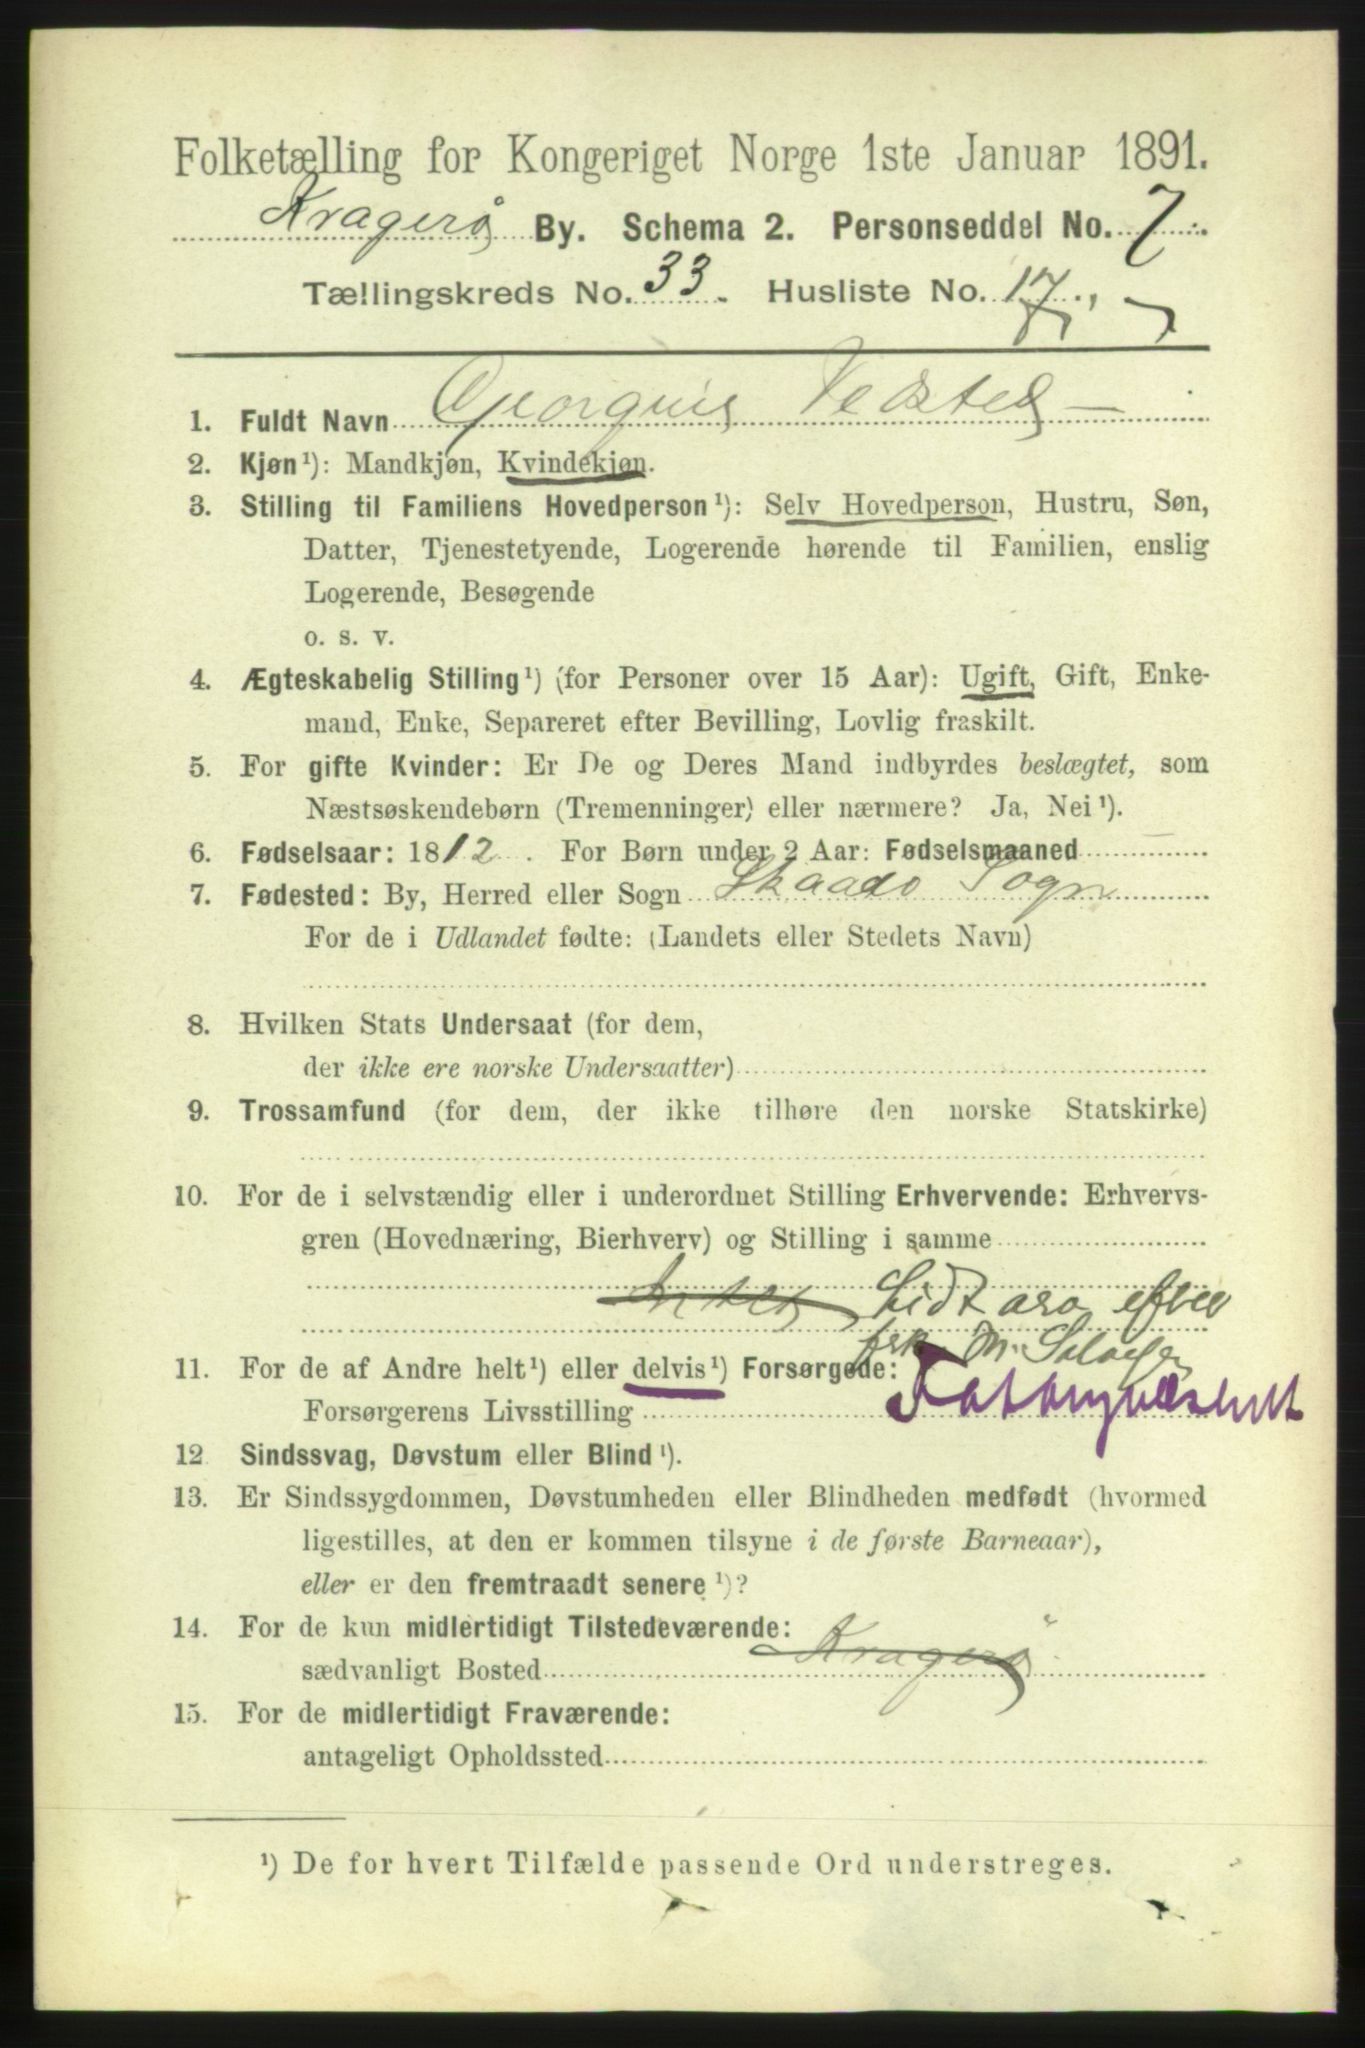 Folketælling for Kongeriget Norge 1ste Januar 1891.
Kragerö By. Schema 2. Personseddel No. 7
Tællingskreds No. 33. Husliste No. 17
1. Fuldt Navn
2. Kjøn ¹): Mandkjøn, Kvindekjøn.
3. Stilling til Familiens Hovedperson ¹): Selv Hovedperson, Hustru, Søn,
Datter, Tjenestetyende, Logerende hørende til Familien, enslig
Logerende, Besøgende
o. s. v.
4. Ægteskabelig Stilling ¹) (for Personer over 15 Aar): Ugift, Gift, Enke-
mand, Enke, Separeret efter Bevilling, Lovlig fraskilt.
5. For gifte Kvinder: Er De og Deres Mand indbyrdes beslægtet, som
Næstsøskendebørn (Tremenninger) eller nærmere? Ja, Nei ¹).
6. Fødselsaar: 1812. For Børn under 2 Aar: Fødselsmaaned
7. Fødested: By, Herred eller Sogn Skaadö Sogn
For de i Udlandet fødte: (Landets eller Stedets Navn)
8. Hvilken Stats Undersaat (for dem,
der ikke ere norske Undersaatter)
9. Trossamfund (for dem, der ikke tilhøre den norske Statskirke)
10. For de i selvstændig eller i underordnet Stilling Erhvervende: Erhvervs-
gren (Hovednæring, Bierhverv) og Stilling i samme
Lidt arv efter
frk. M.
11. For de af Andre helt ¹) eller delvis ¹) Forsørgede:
Forsørgerens Livsstilling Fattigvæsenet
12. Sindssvag, Døvstum eller Blind ¹).
13. Er Sindssygdommen, Døvstumheden eller Blindheden medfødt (hvormed
ligestilles, at den er kommen tilsyne i de første Barneaar),
eller er den fremtraadt senere ¹)?
14. For de kun midlertidigt Tilstedeværende:
sædvanligt Bosted Kragerö
15. For de midlertidigt Fraværende:
antageligt Opholdssted
¹) De for hvert Tilfælde passende Ord understreges.